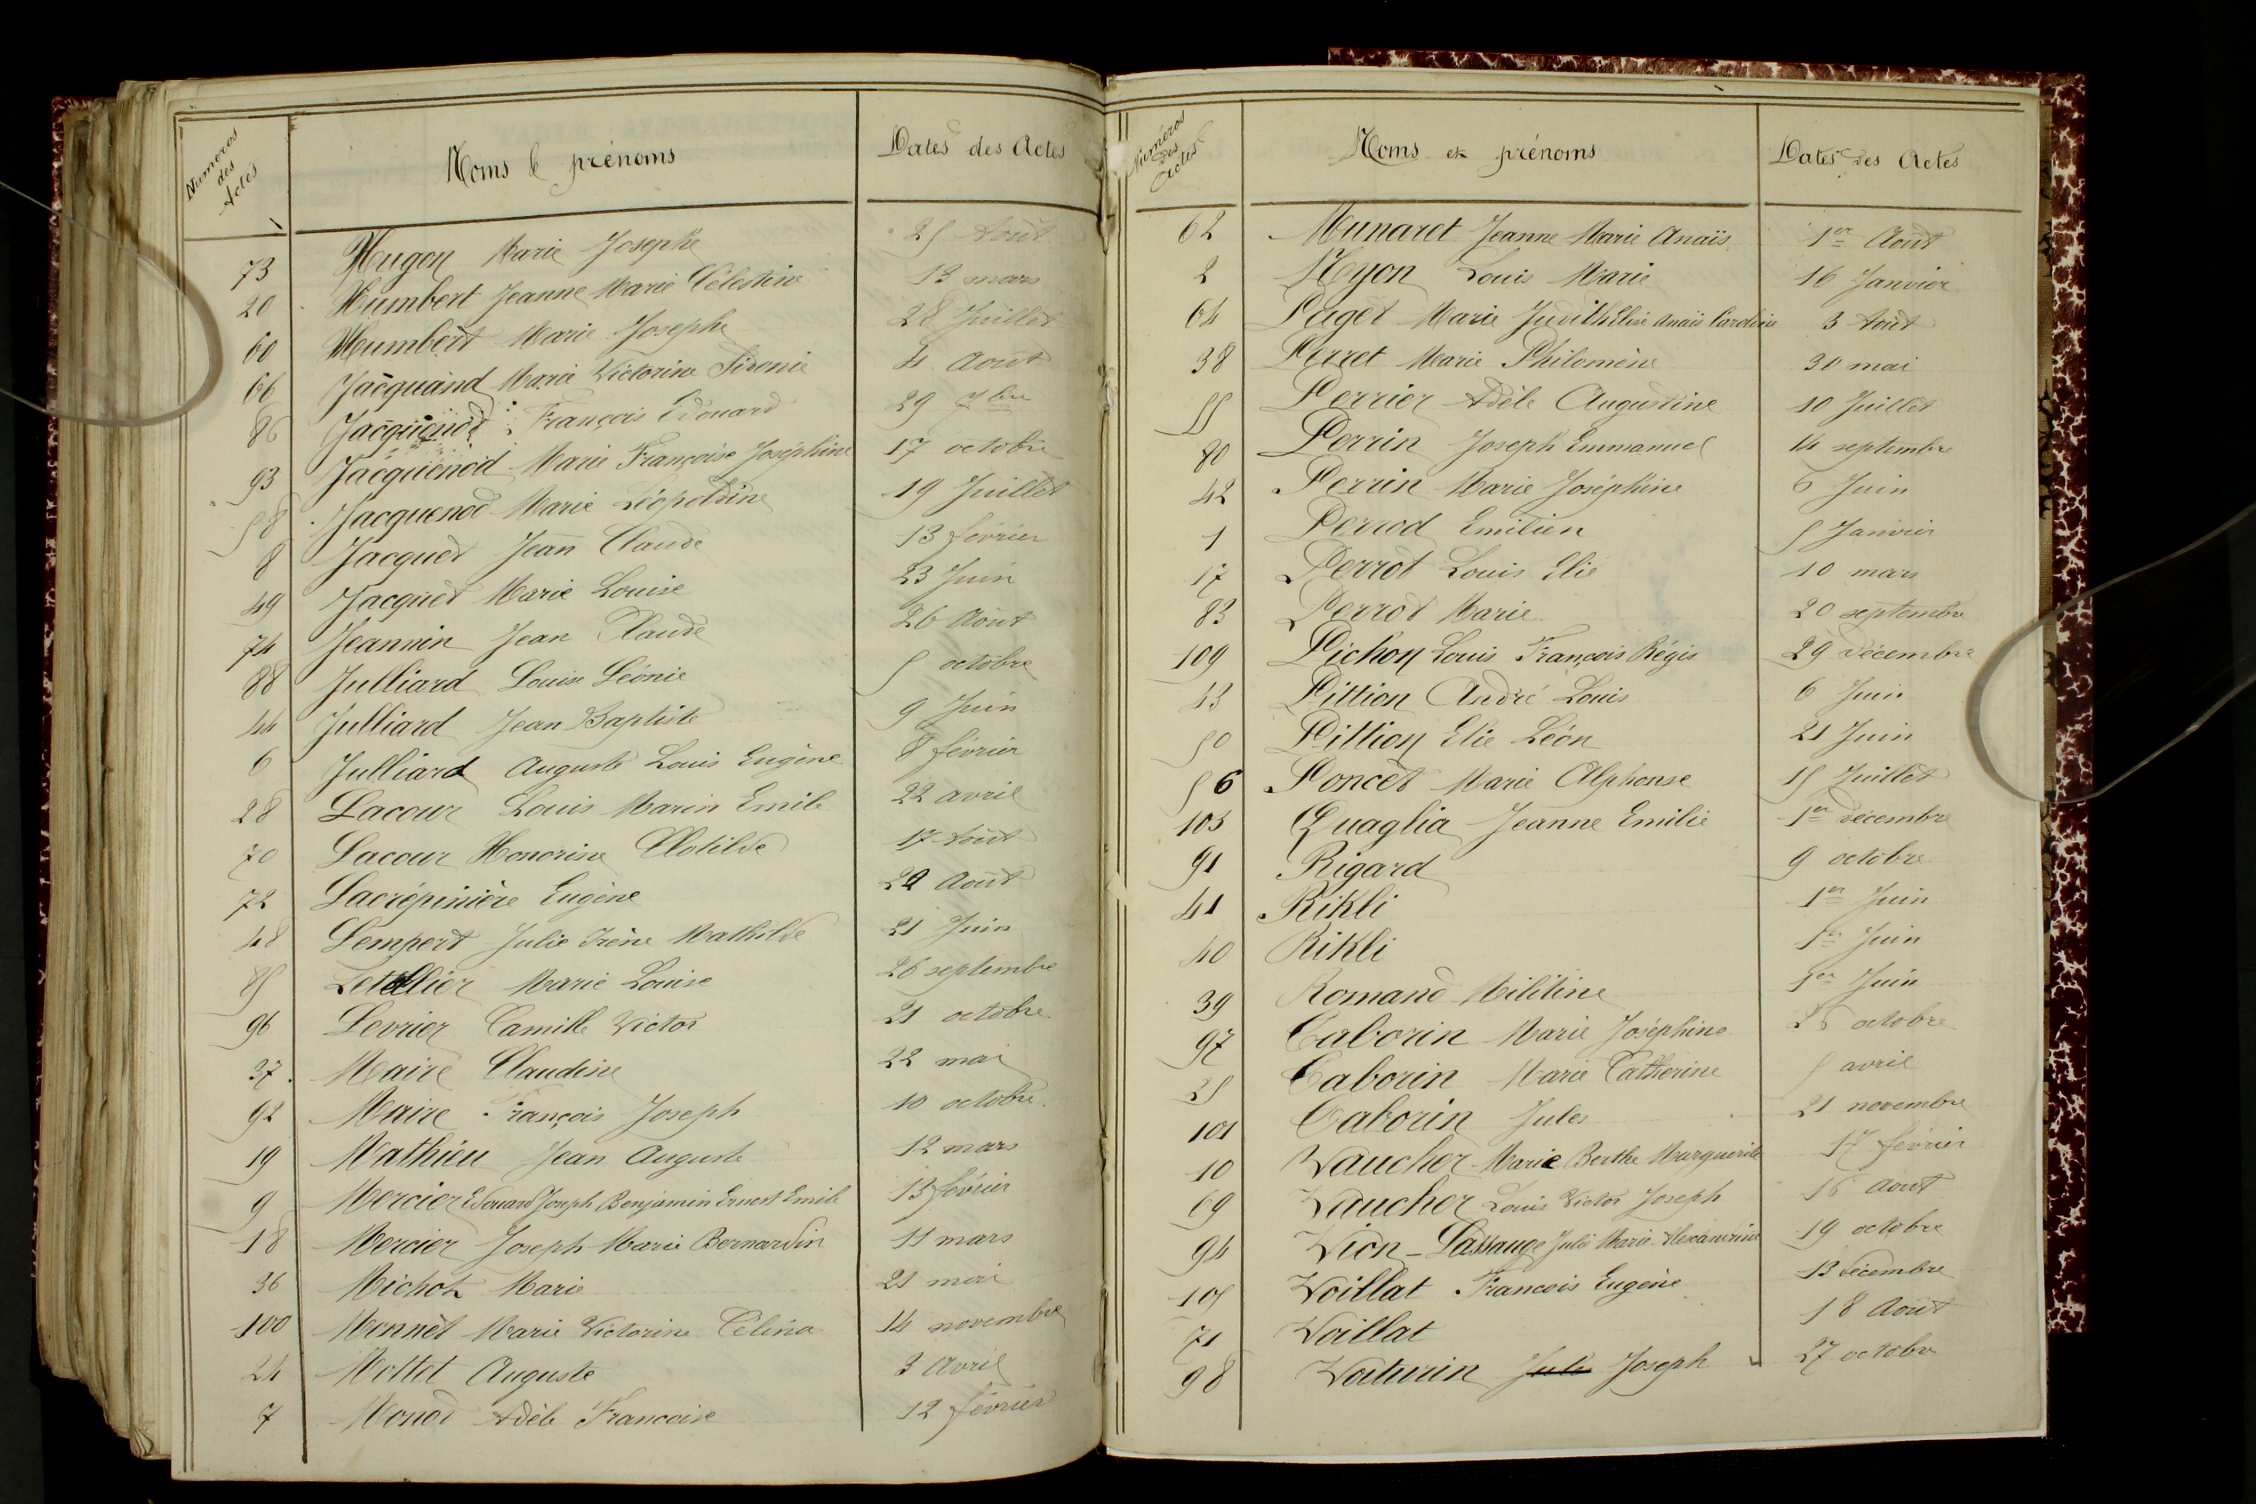 Numéros des Actes Noms & prénoms Dates des Actes
73 Hugon Marie Josephe 25 Août
20 Humbert Jeanne Marie Célestine 13 mars
60 Humbert Marie Josephe 28 Juillet
66 Jacquand Marie Victorine 4 Août
86 Jacquenod François Edouard 29 7bre
93 Jacquenod Marie Françoise Joséphine 17 octobre
58 Jacquenod Marie Léopoldine 19 Juillet
8 Jacquet Jean Claude 13 février
49 Jacquet Marie Louise 23 Juin
74 Jeannin Jean Claude 26 Août
88 Julliard Louise Léonie 5 octobre
44 Julliard Jean Baptiste 9 Juin
6 Julliard Auguste Louis Eugène 8 février
28 Lacour Louis Marin Emile 22 avril
70 Lacour Honorine Clotilde 17 Août
72 Lacrépinière Eugène Août
48 Lempert Julie Irène Mathilde 21 Juin
85 Letellier Marie Louise 26 septembre
96 Levrier Camille Victor 21 octobre
37 Maire Claudine 22 mai
92 Maire François Joseph 10 octobre
19 Mathieu Jean Auguste 12 mars
9 Mercier Edouard Joseph Benjamin Ernest Emile 13 février
18 Mercier Joseph Marie Bernardin 11 mars
36 Michot Marie 21 mai
100 Monnet Marie Victorine Célina 14 novembre
24 Mottet Auguste 3 Avril
7 Monod Adèle Francoise 12 février
Numéros des Actes Noms et prénoms Dates des Actes
62 Munaret Jeanne Marie Anaïs 1er Août
2 Myon Louis Marie 16 Janvier
64 Paget Marie Judith Elise Anaïs Caroline 3 Août
38 Perret Marie Philomène 30 mai
55 Perrier Adèle Augustine 10 Juillet
80 Perrin Joseph Emmanuel 14 septembre
42 Perrin Marie Joséphine 6 Juin
1 Perrod Emilien 5 Janvier
17 Perrot Louis Elie 10 mars
83 Perrot Marie 20 septembre
109 Pichon Louis François Régis 29 décembre
43 Pittion André Louis 6 Juin
50 Pittion Elie Léon 21 Juin
56 Poncet Marie Alphonse 15 Juillet
103 Quaglia Jeanne Emilie 1er décembre
91 Rigard 9 octobre
41 Rikli 1er Juin
40 Rikli 1er Juin
39 Romand Militine 1er Juin
97 Taborin Marie Joséphine 25 octobre
25 Taborin Marie Catherine 5 avril
101 Taborin Jules 21 novembre
10 Vaucher Marie Berthe Marguerite 17 février
69 Vaucher Louis Victor Joseph 16 Août
94 Vion-Lassauge Julie Marie Alexandrine 19 octobre
105 Voillat Francois Eugène 13 décembre
71 Voillat 18 Août
98 Voiturin Jules Joseph 27 octobre